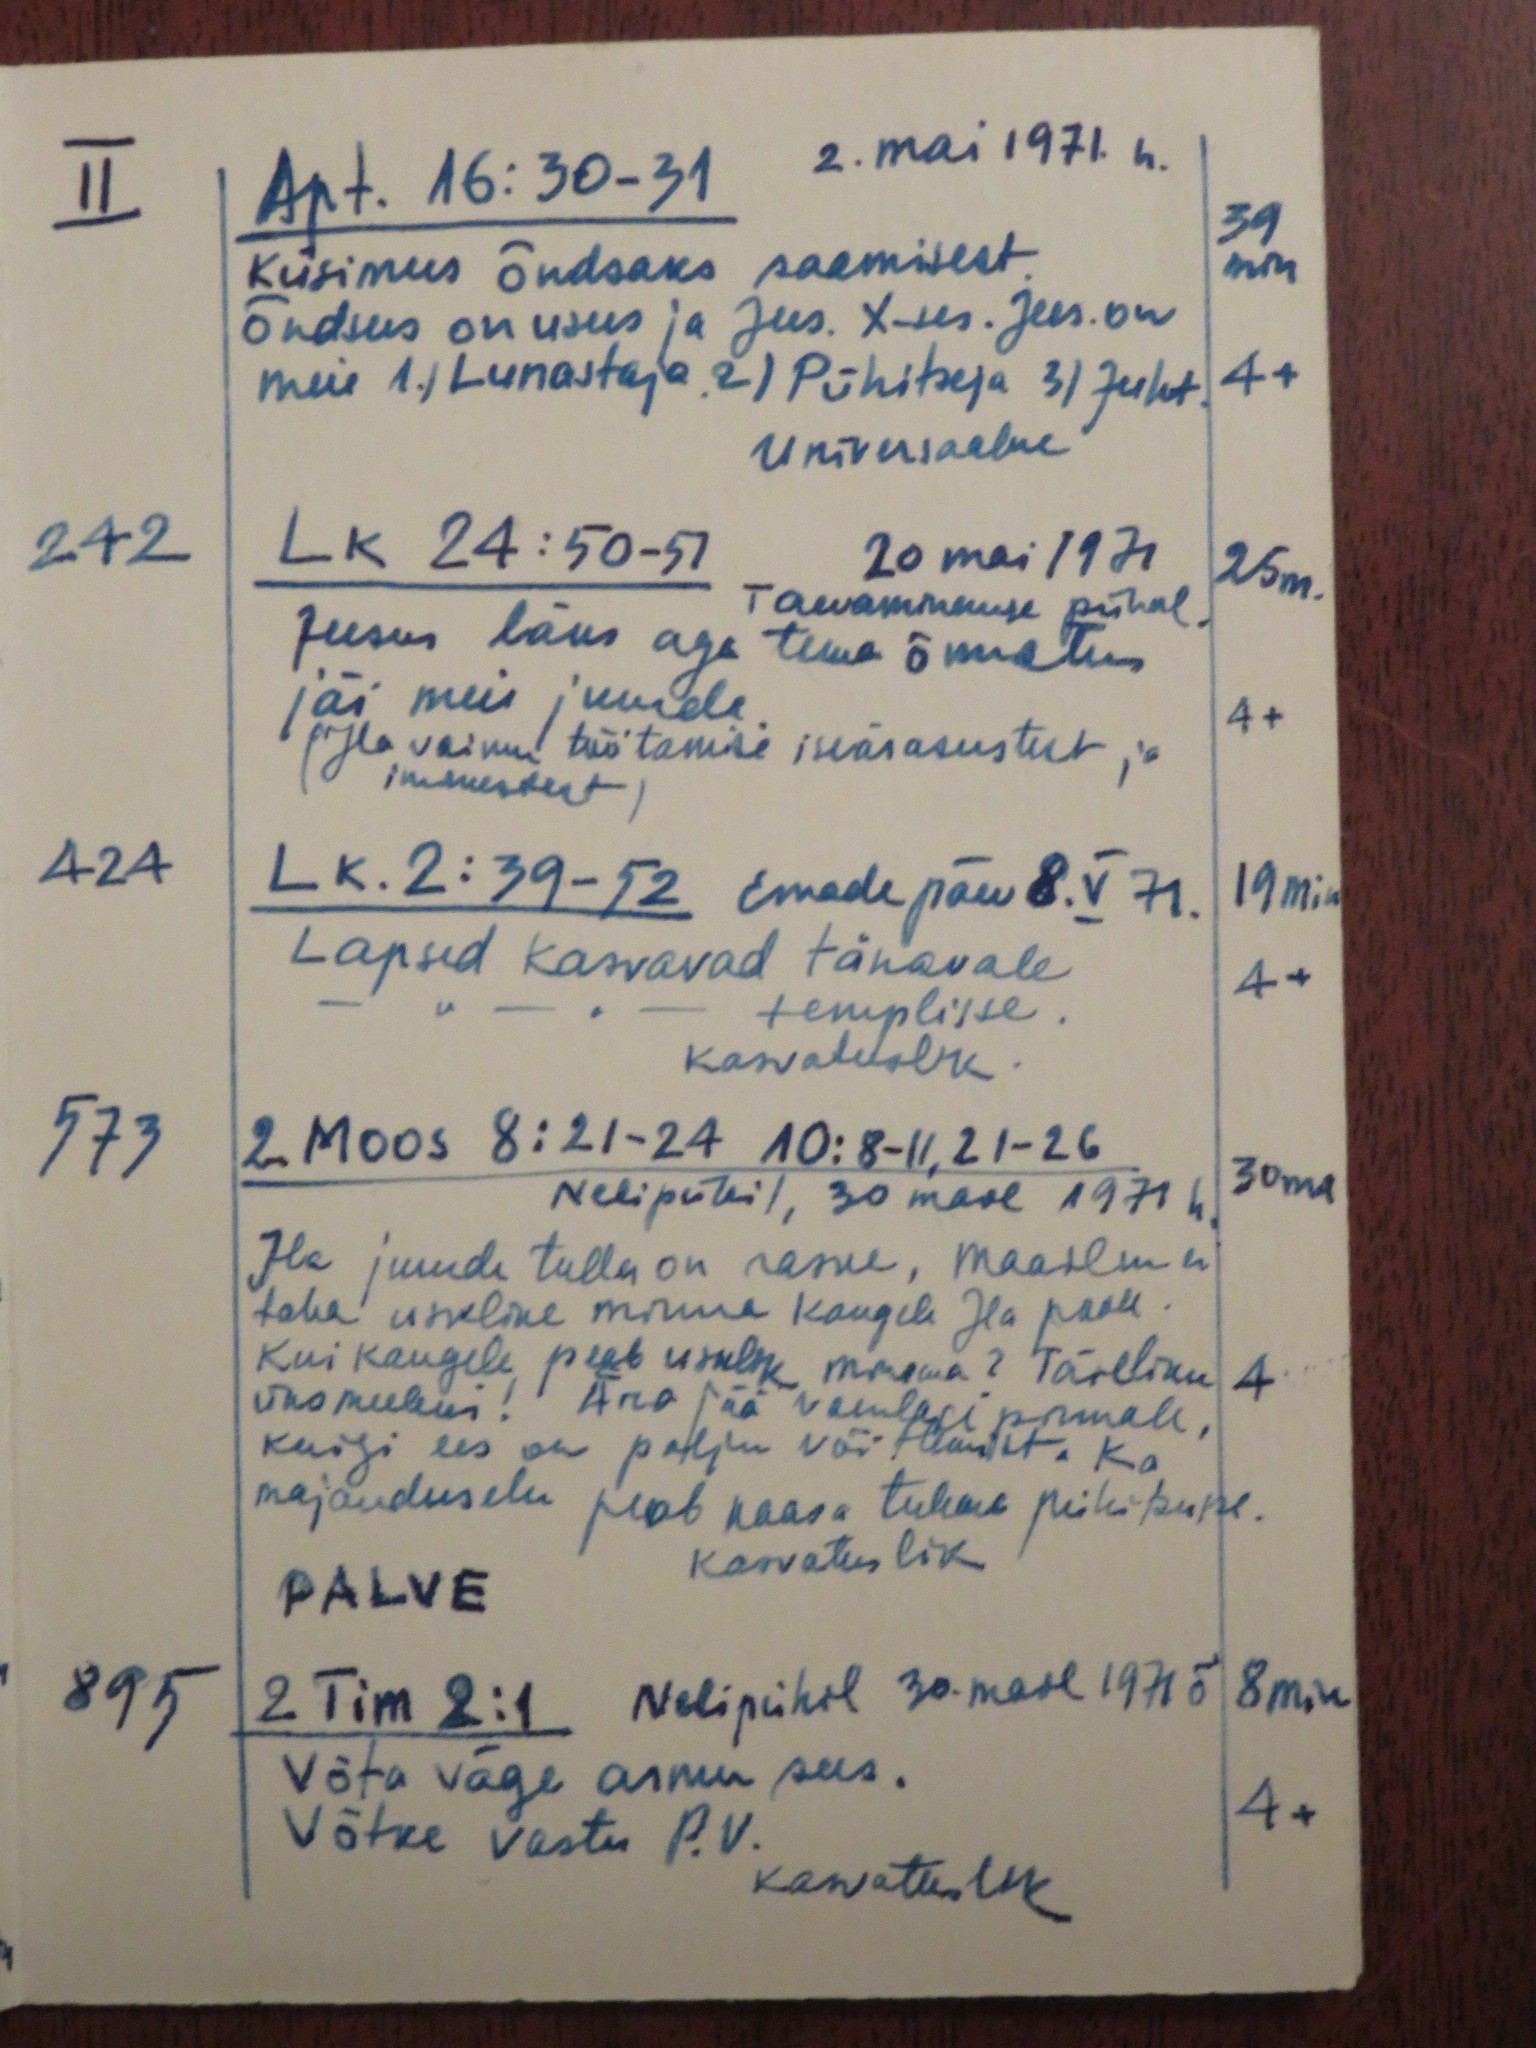 II
Apt. 16:30-31 2. mai 1971. h.
39 min
Küsimus õndsaks saamisest.
Õndsus on usus ja Jees. X-ses. Jees. on
meie 1.) Lunastaja 2) Pühitseja 3) Juht. 4+
Universaalne
242 Lk 24:50-51 20 mai 1971 25m.
Taevaminemise pühal.
Jeesus läks aga tema õnnistus
jäi meie juurde. 4+
(Jla vaimu töötamise iseärasustest ja
imemustest)
424 Lk. 2:39-52 Emade päev 8. V 71. 19min
Lapsed kasvavad tänavale 4+
— " — " — templisse.
kasvatuslik.
573 2 Moos 8:21-24 10:8-11, 21-26
Nelipühil, 30 mail 1971 h. 30ma
Jla juurde tulla on raske, maailm ei
taha usklike minna kaugele Jla poole.
Kui kaugele peab usklik minema? Täieliku 4
üksmeeleni! Ära jää vaenlase pinnale,
kuigi ees on palju võitlemist. Ka
majanduselu peab kaasa tulema pühitsusse.
kasvatuslik
PALVE
895 2 Tim 2:1 Nelipühil 30. mail 1971 õ 8min
Võta väge armu sees.
4+
Võtke vastu P.V.
kasvatuslik